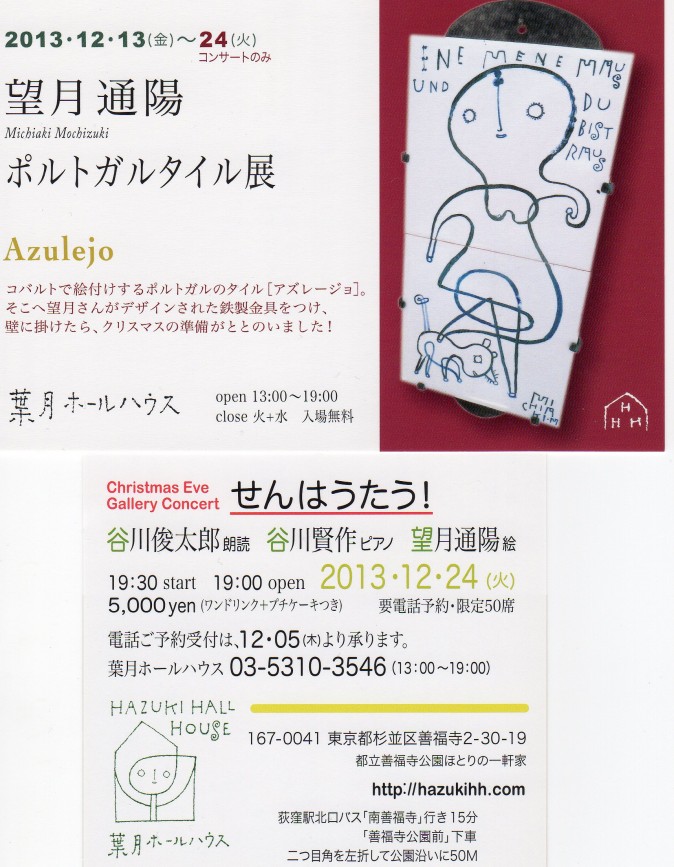 2013・12・13(金)～24(火)
コンサートのみ
望月通陽
Michiaki Mochizuki
ポルトガルタイル展
Azulejo
コバルトで絵付けするポルトガルのタイル［アズレージョ］。
そこへ望月さんがデザインされた鉄製金具をつけ、
壁に掛けたら、クリスマスの準備がととのいました！
葉月ホールハウス
open 13:00～19:00
close 火+水　入場無料
ENE MENE MAUS
UND DU
BIST
RAUS
H
H H
Christmas Eve
Gallery Concert せんはうたう！
谷川俊太郎 朗読　谷川賢作 ピアノ　望月通陽 絵
19:30 start　19:00 open　2013・12・24(火)
5,000yen (ワンドリンク+プチケーキつき)　要電話予約・限定50席
電話ご予約受付は、12・05(木)より承ります。
葉月ホールハウス 03-5310-3546 (13:00～19:00)
HAZUKI HALL
HOUSE
葉月ホールハウス
167-0041 東京都杉並区善福寺2-30-19
都立善福寺公園ほとりの一軒家
http://hazukihh.com
荻窪駅北口バス「南善福寺」行き15分
「善福寺公園前」下車
二つ目角を左折して公園沿いに50M